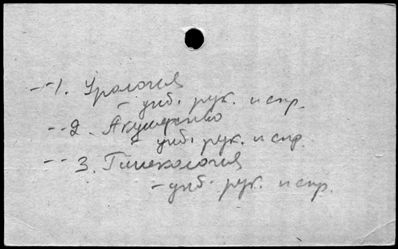 -- 1. Урология
- учб. рук. и спр.
-- 2. Акушерство
- учб. рук. и спр.
-- 3. Гинекология
- учб. рук. и спр.